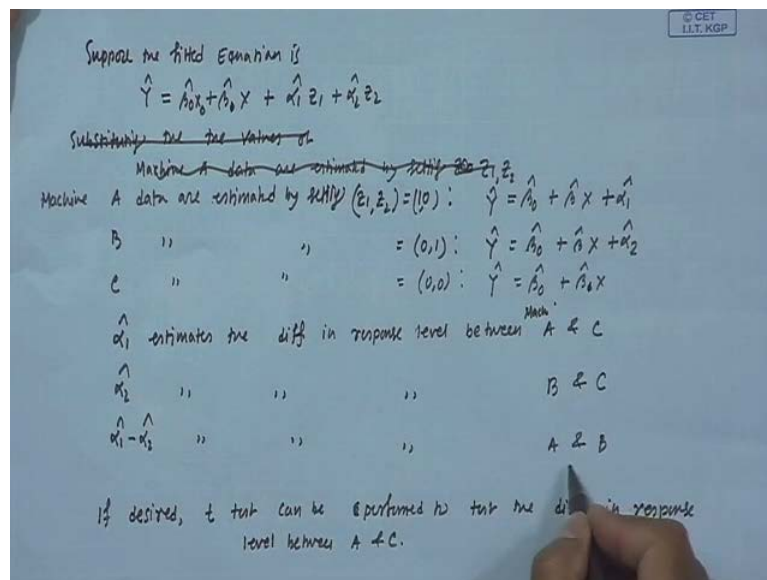 © CET
I.I.T. KGP
Suppose the fitted Equation is
Ŷ = β̂₀x₀ + β̂₁ X + α̂₁ z₁ + α̂₂ z₂
Substituting the the values of
Machine A data are estimated by setting z₁, z₂
Machine A data are estimated by setting (z₁, z₂) = (1,0) : Ŷ = β̂₀ + β̂ X + α̂₁
B ,, ,, = (0,1) : Ŷ = β̂₀ + β̂ X + α̂₂
C ,, ,, = (0,0) : Ŷ = β̂₀ + β̂₁ X
α̂₁ estimates the diff in response level between Mach. A & C
α̂₂ ,, ,, ,, B & C
α̂₁ - α̂₂ ,, ,, ,, A & B
If desired, t test can be performed to test the di in response
level between A & C.